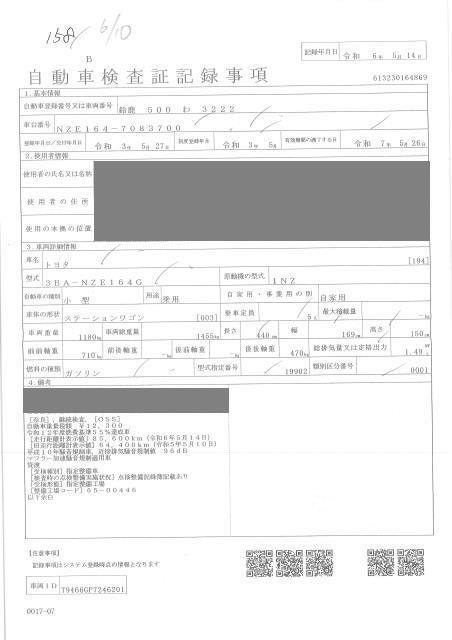 158 6/10
記録年月日 令和 6年 5月14日
B
自動車検査証記録事項
613230164869
1.基本情報
自動車登録番号又は車両番号 鈴鹿 500 わ 3222
車台番号 NZE164-7083700
登録年月日/交付年月日 令和 3年 5月27日 初度登録年月 令和 3年 5月 有効期間の満了する日 令和 7年 5月26日
2.使用者情報
使用者の氏名又は名称
使用者の住所
使用の本拠の位置
3.車両詳細情報
車名 トヨタ [194]
型式 3BA-NZE164G 原動機の型式 1NZ
自動車の種別 小型 用途 乗用 自家用・事業用の別 自家用
車体の形状 ステーションワゴン [003] 乗車定員 5人 最大積載量 -kg
車両重量 1180kg 車両総重量 1455kg 長さ 440cm 幅 169cm 高さ 150cm
前前軸重 710kg 前後軸重 -kg 後前軸重 -kg 後後軸重 470kg 総排気量又は定格出力 1.49
燃料の種類 ガソリン 型式指定番号 19902 類別区分番号 0001
4.備考
[奈良],継続検査,[OSS]
自動車重量税額 ¥12,300
令和12年度燃費基準55%達成車
[走行距離計表示値]85,600km(令和6年5月14日)
[旧走行距離計表示値]64,400km(令和5年5月10日)
平成10年騒音規制車,近接排気騒音規制値 96dB
マフラー加速騒音規制適用車
[受検種別]指定整備車
[検査時の点検整備実施状況]点検整備記録簿記載あり
[受検形態]指定整備工場
[整備工場コード]65-00446
以下余白
【注意事項】
記録事項はシステム登録時点の情報となります
車両ID T9466GP7246201
0017-07